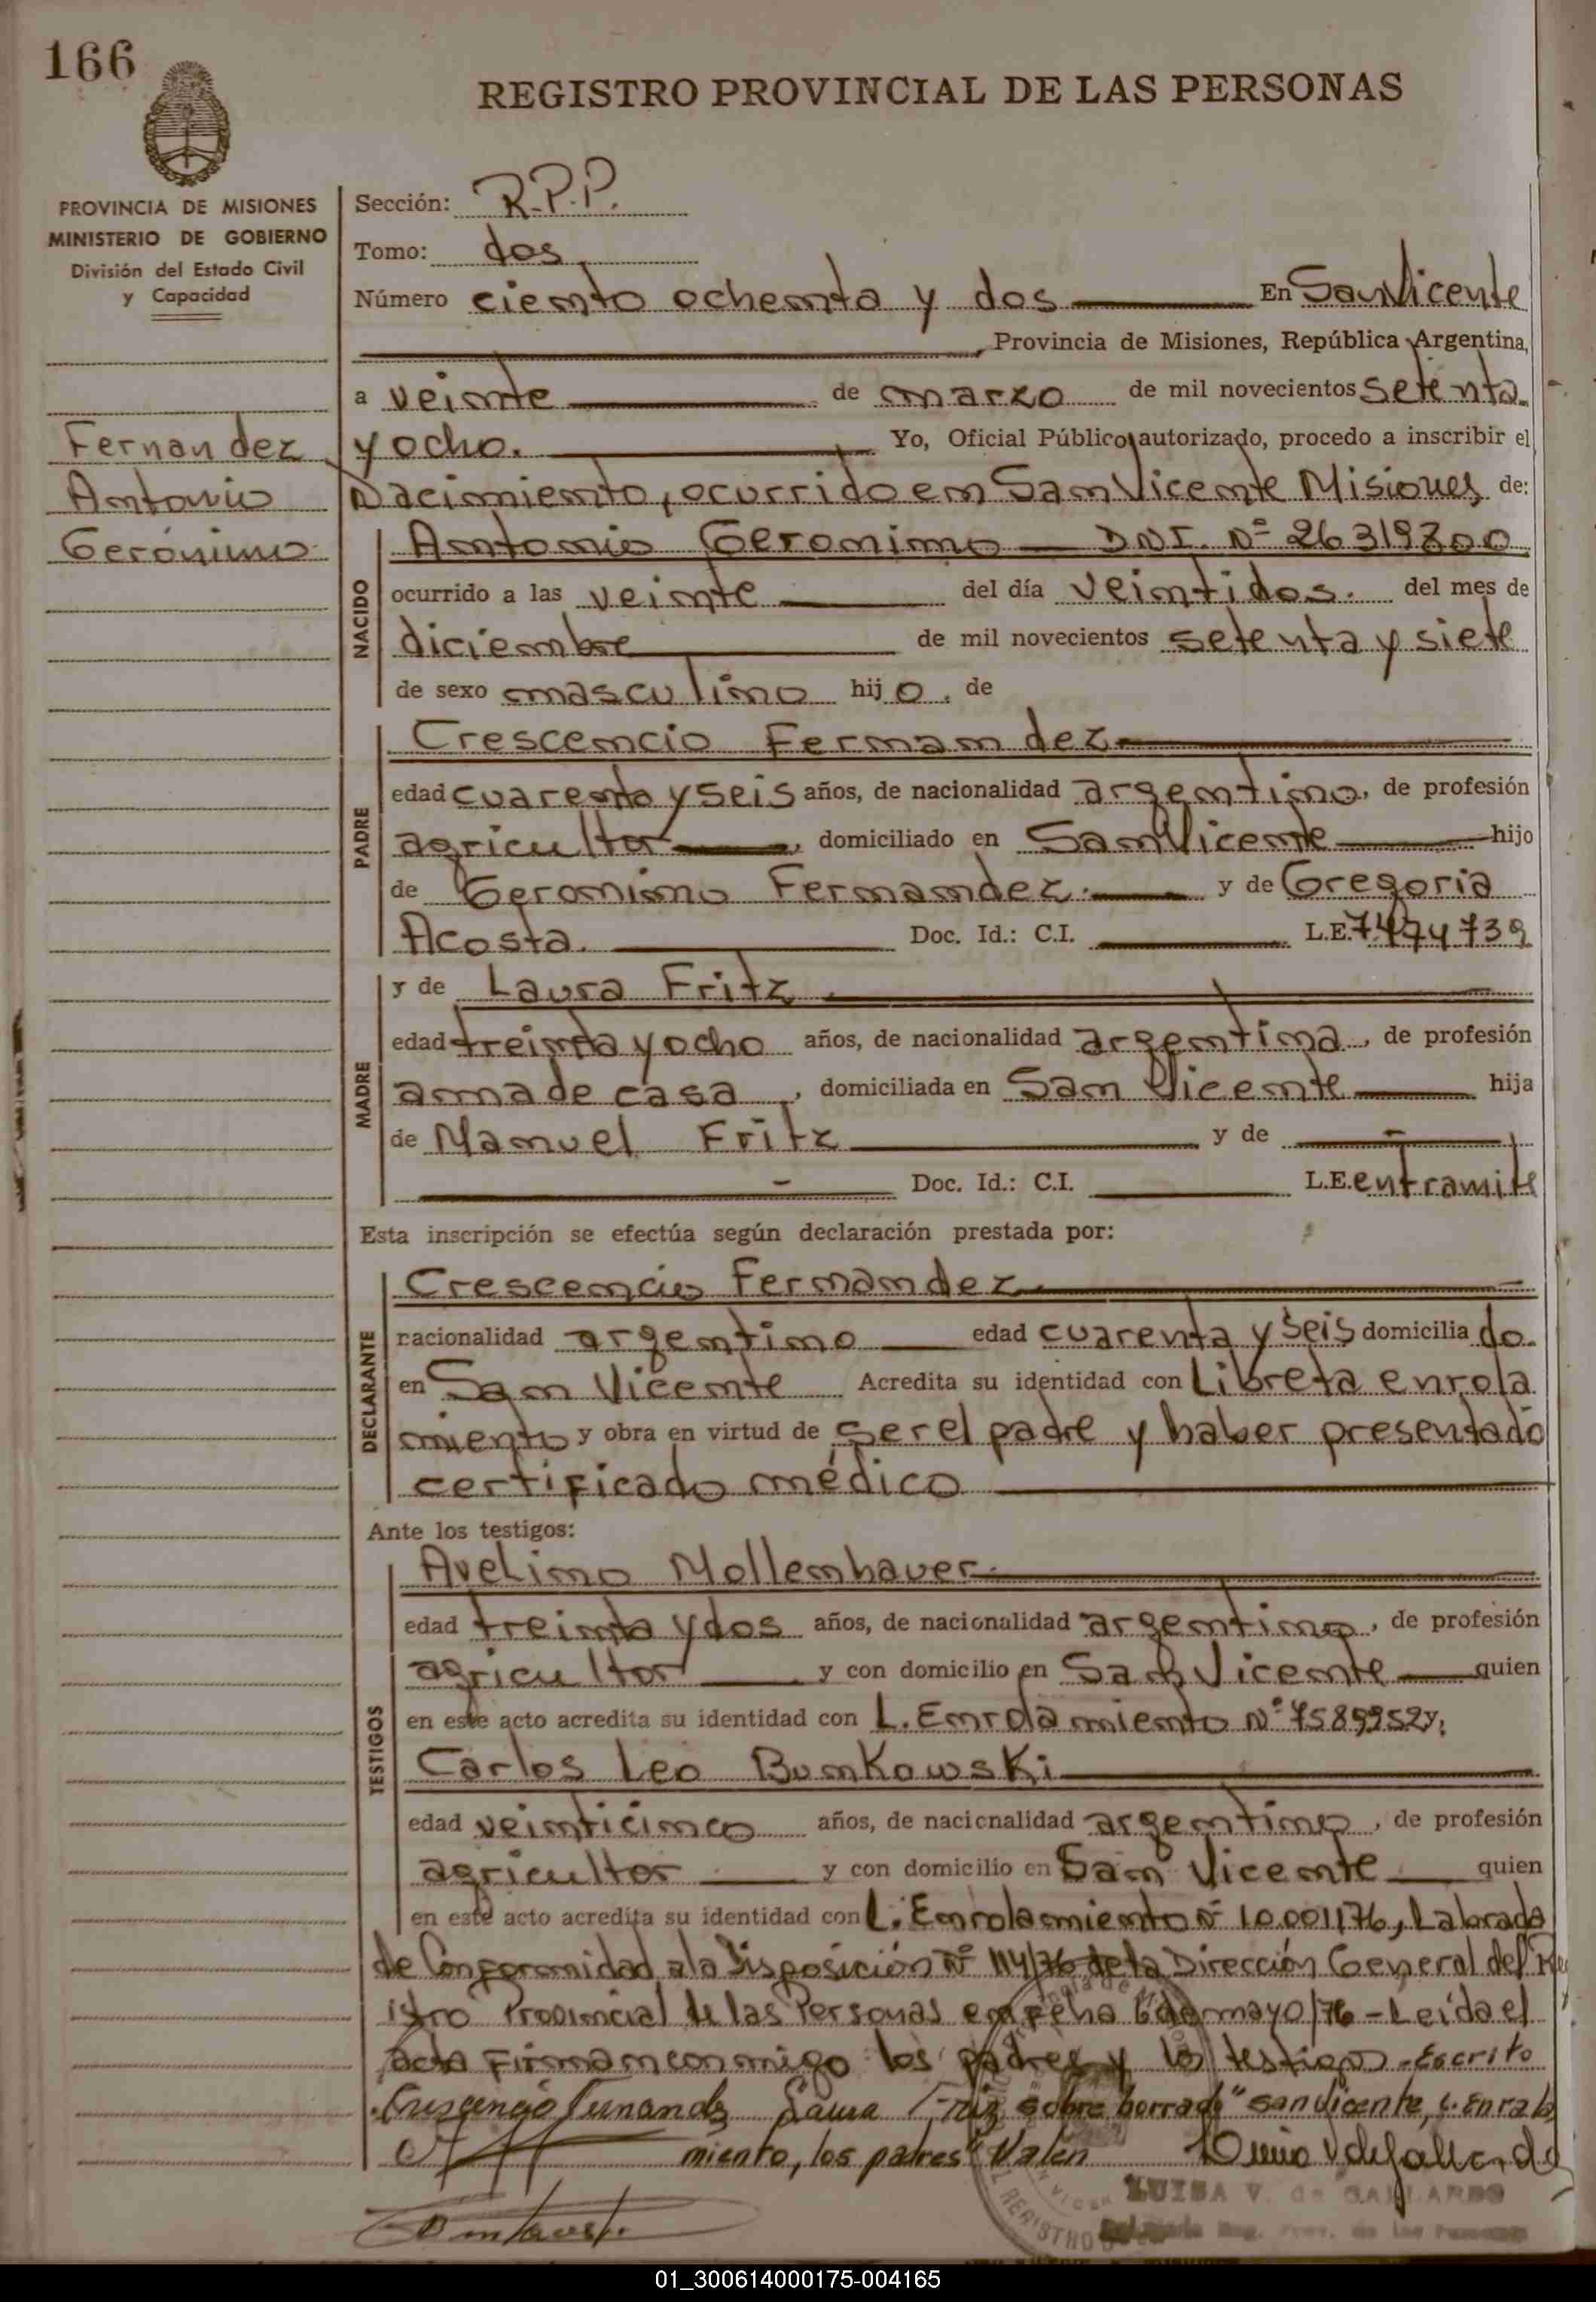 166
REGISTRO PROVINCIAL DE LAS PERSONAS
PROVINCIA DE MISIONES
MINISTERIO DE GOBIERNO
División del Estado Civil
y Capacidad
Fernandez
Antonio
Gerónimo
Sección: R.P.P.
Tomo: dos
Número ciento ochenta y dos En San Vicente
, Provincia de Misiones, República Argentina,
a veinte de marzo de mil novecientos setenta
y ocho. Yo, Oficial Público autorizado, procedo a inscribir el
Nacimiento, ocurrido en San Vicente Misiones de:
NACIDO
Antonio Geronimo — DNI. Nº 26319800
ocurrido a las veinte del día veintidos. del mes de
diciembre de mil novecientos setenta y siete
de sexo masculino hijo. de
PADRE
Crescencio Fernandez
edad cuarenta y seis años, de nacionalidad argentino, de profesión
agricultor, domiciliado en San Vicente hijo
de Geronimo Fernandez. y de Gregoria
Acosta. Doc. Id.: C.I. L.E. 7474739
MADRE
y de Laura Fritz
edad treinta y ocho años, de nacionalidad argentina, de profesión
ama de casa, domiciliada en San Vicente hija
de Manuel Fritz y de -
- Doc. Id.: C.I. L.E. en tramite
Esta inscripción se efectúa según declaración prestada por:
DECLARANTE
Crescencio Fernandez
nacionalidad argentino edad cuarenta y seis domiciliado.
en San Vicente Acredita su identidad con Libreta enrola
miento y obra en virtud de ser el padre y haber presentado
certificado médico
Ante los testigos:
TESTIGOS
Avelino Mollenhauer
edad treinta y dos años, de nacionalidad argentino, de profesión
agricultor y con domicilio en San Vicente quien
en este acto acredita su identidad con L. Enrolamiento Nº 7589952 y,
Carlos Leo Bunkowski
edad veinticinco años, de nacionalidad argentino, de profesión
agricultor y con domicilio en San Vicente quien
en este acto acredita su identidad con L. Enrolamiento Nº 10.001176, Labrada
de Conformidad a la Disposición Nº 114/76 de la Dirección General del Re
istro Provincial de las Personas en fecha 6 de mayo/76 - Leída el
acta firman conmigo los padres y los testigos - Escrito
Crescencio Fernandez Laura Fritz sobre borrado "San Vicente, L. Enrola
miento, los padres" Valen
LUISA V. de GALLARDO
REGISTRO
01_300614000175-004165